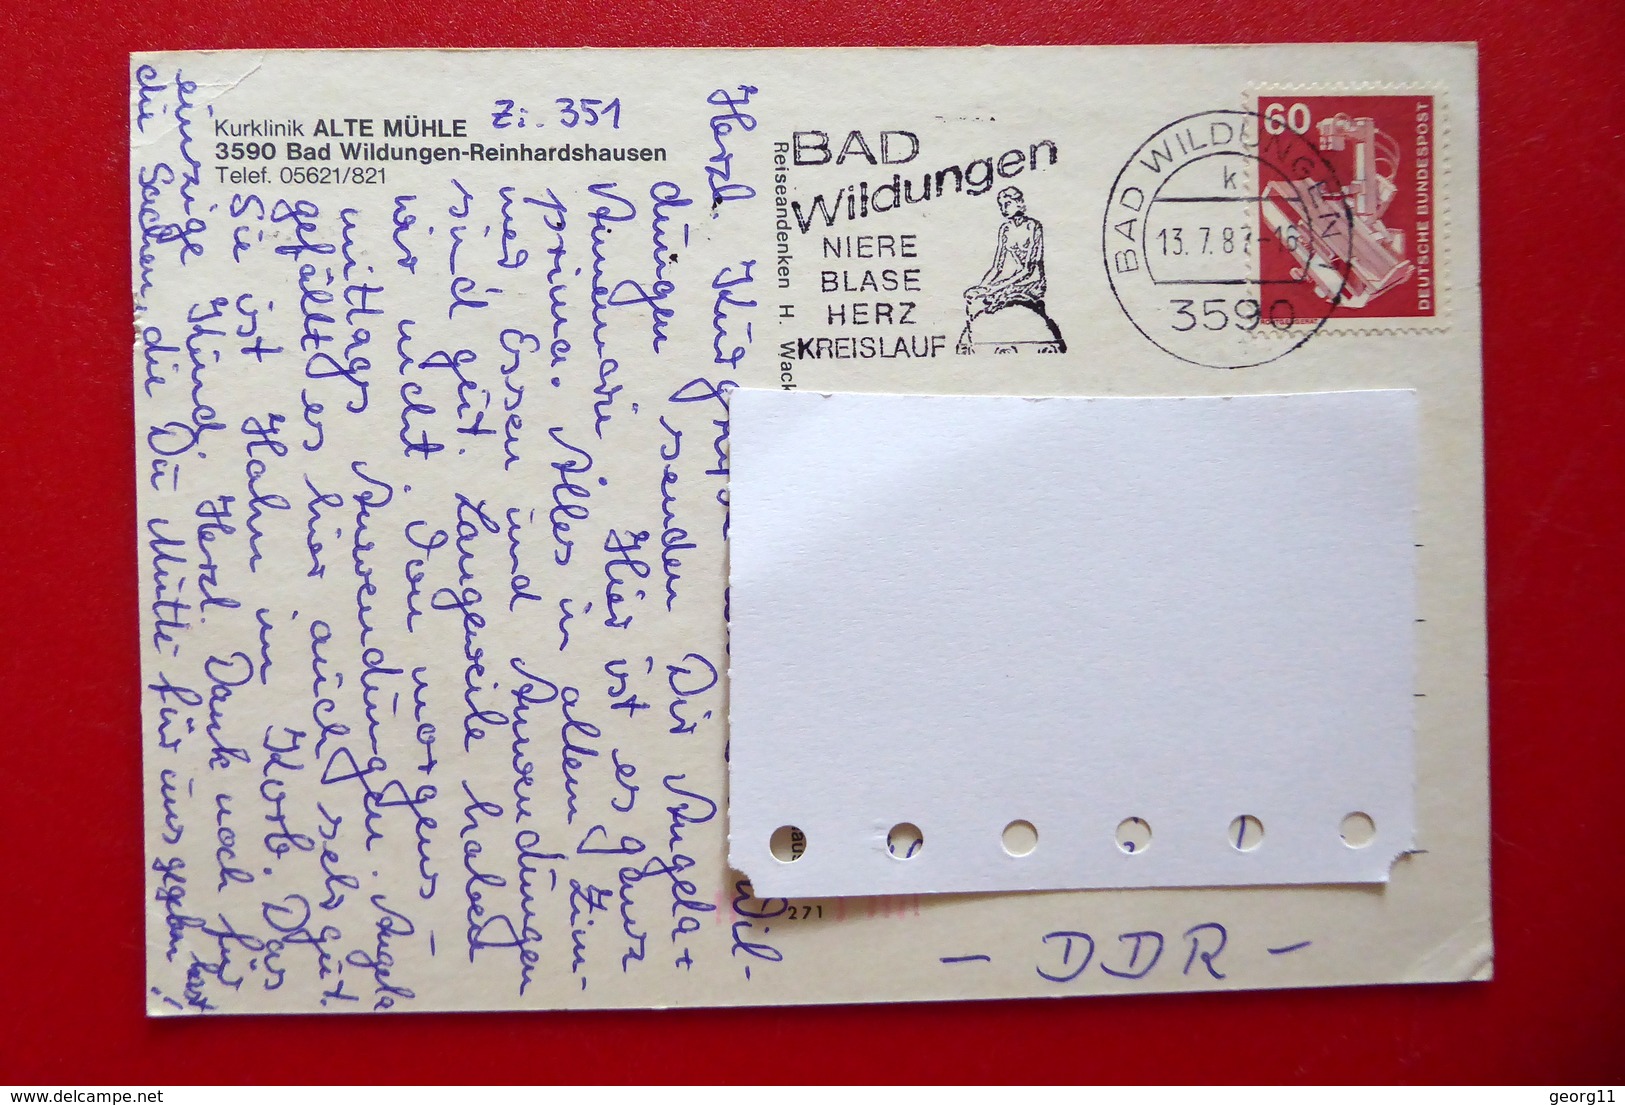 Kurklinik ALTE MÜHLE
3590 Bad Wildungen-Reinhardshausen
Telef. 05621/821
Zi. 351
Herzl. Kurgrüße
Wil-
dungen senden Dir Angela +
Annemarie. Hier ist es ganz
prima. Alles in allem Zim-
mer Essen und Anwendungen
sind gut. Langeweile haben
wir nicht. Von morgens -
mittags Anwendungen. Angela
gefällt es hier auch sehr gut.
Sie ist Hahn im Korb. Das
einzige Kind. Herzl. Dank noch für
die Sachen, die Du Mutti für uns gegeben hast!
Reiseandenken H. Wack
271
BAD
Wildungen
NIERE
BLASE
HERZ
KREISLAUF
BAD WILDUNGEN
k
13.7.87-16
3590
60
DEUTSCHE BUNDESPOST
- DDR -
georg11